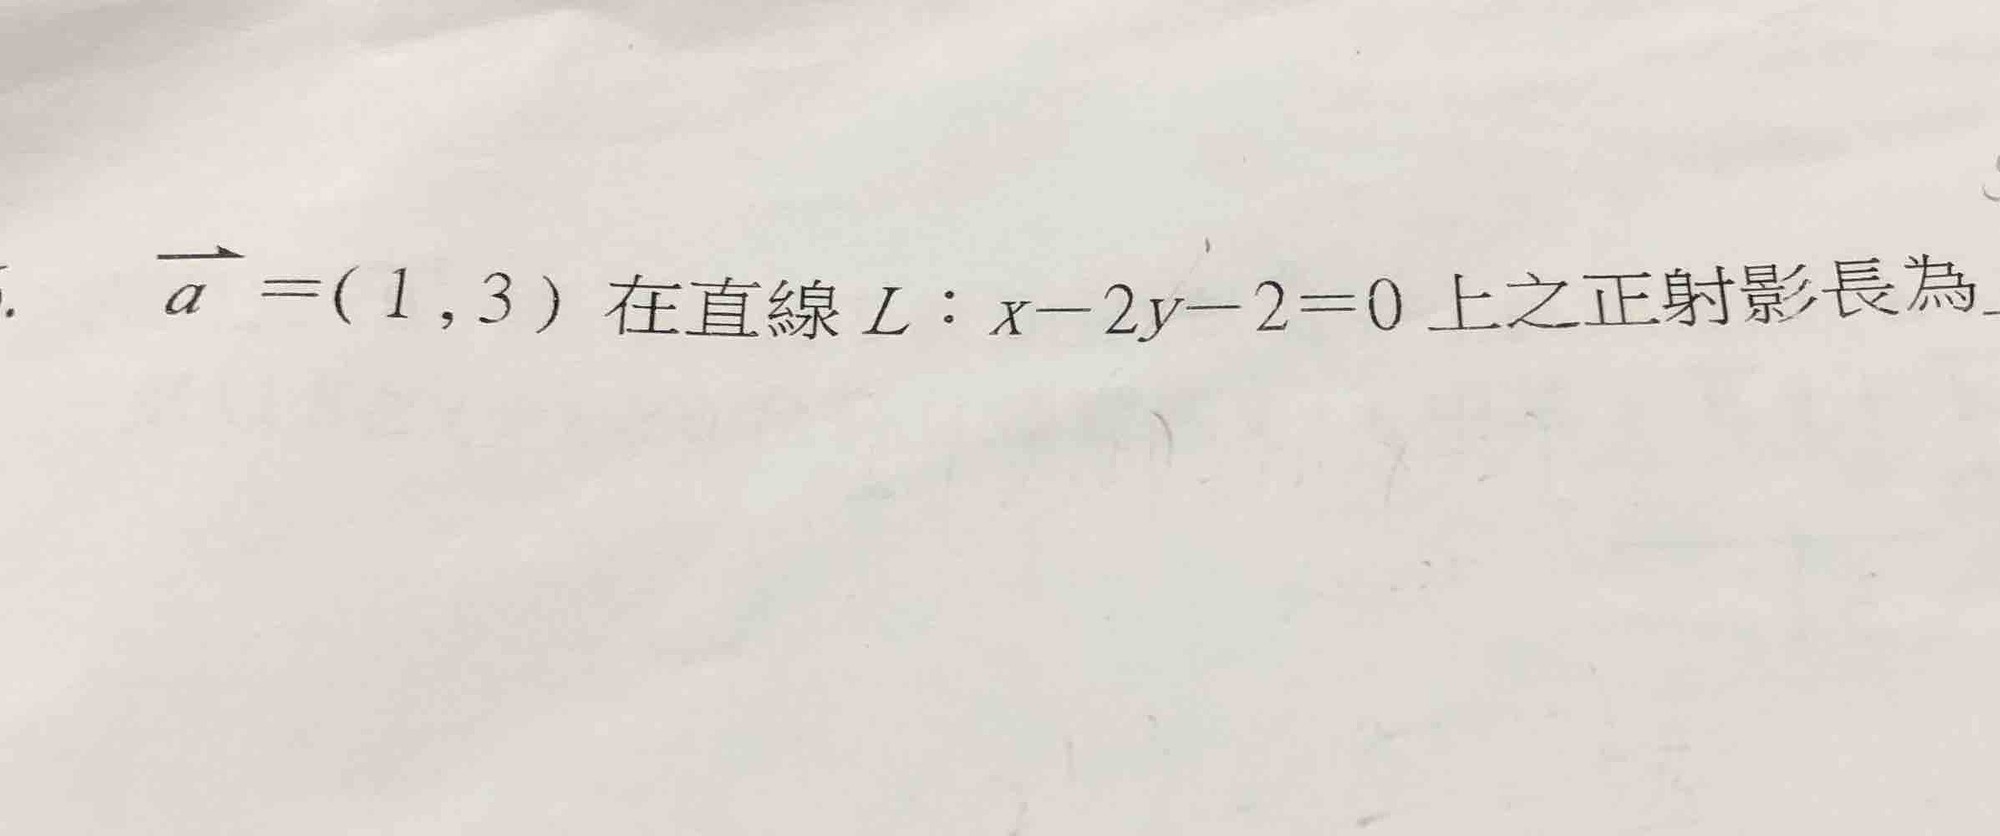 . $\overrightarrow{a}=(1,3)$ 在直線 $L：x-2y-2=0$ 上之正射影長為